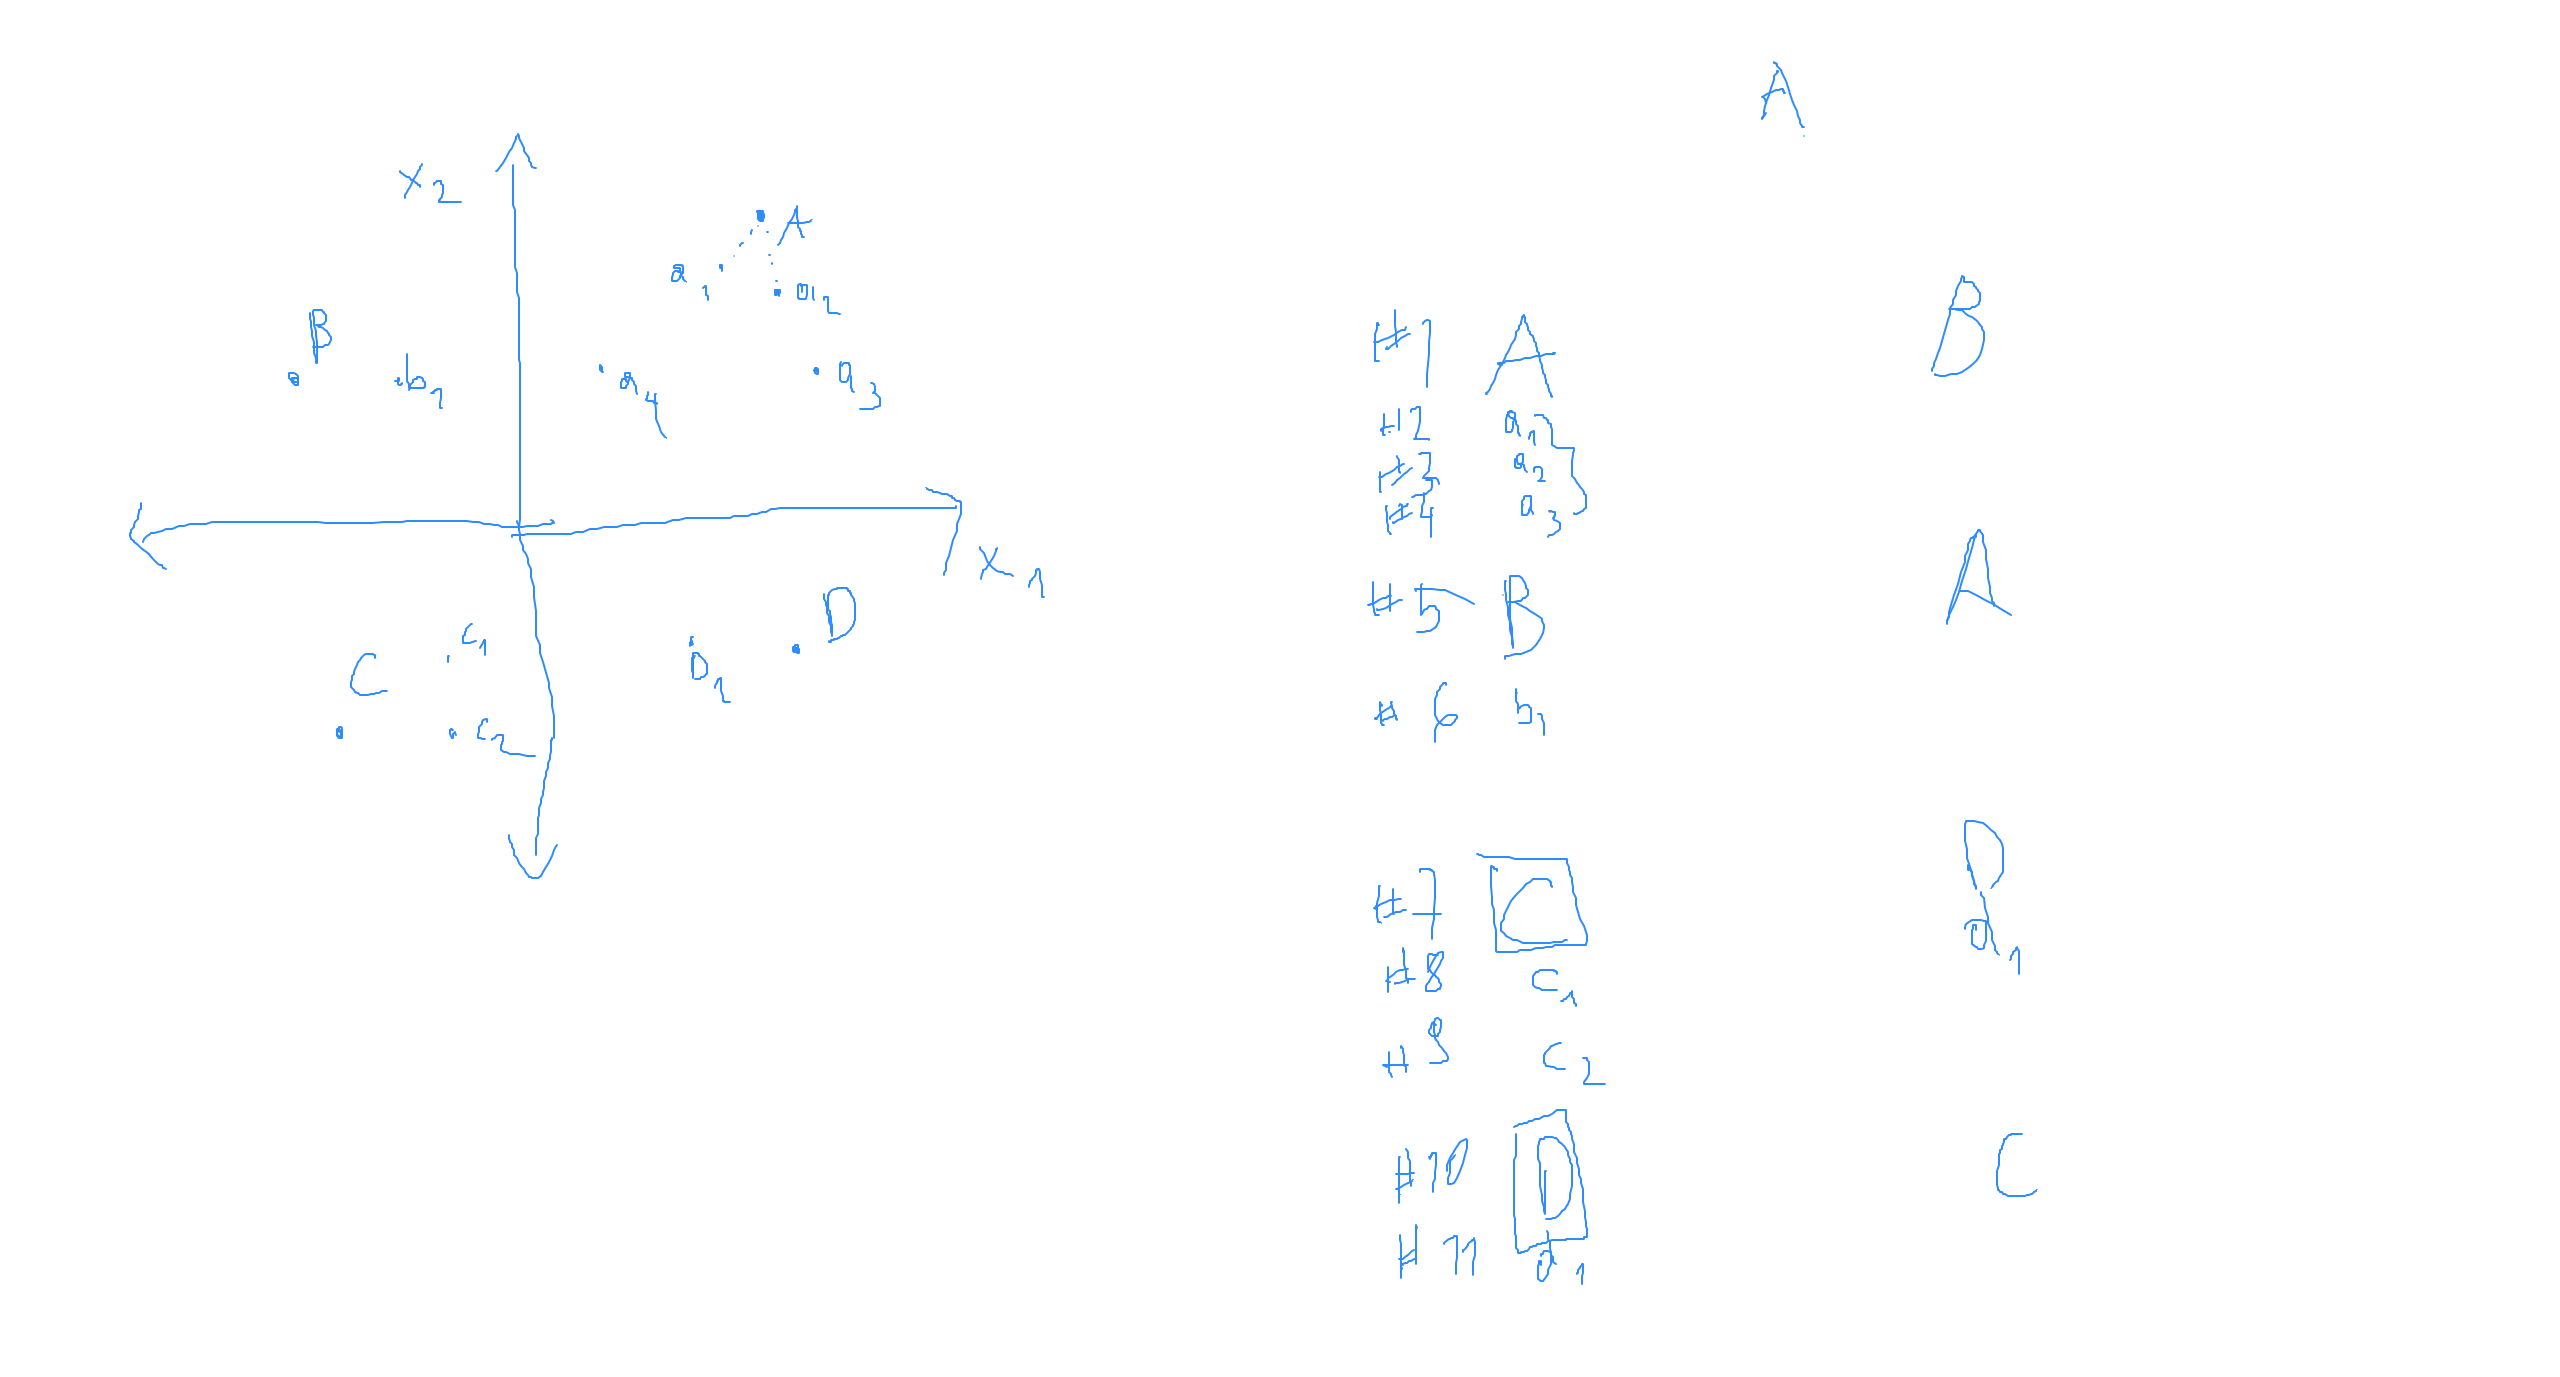 x2
A
a1
a2
B
b1
a4
a3
x1
D
D1
C
c1
c2
A
#1 A
#2 a1
#3 a2
#4 a3
#5 B
#6 b1
#7 C
#8 c1
#9 c2
#10 D
#11 d1
B
A
D
d1
C